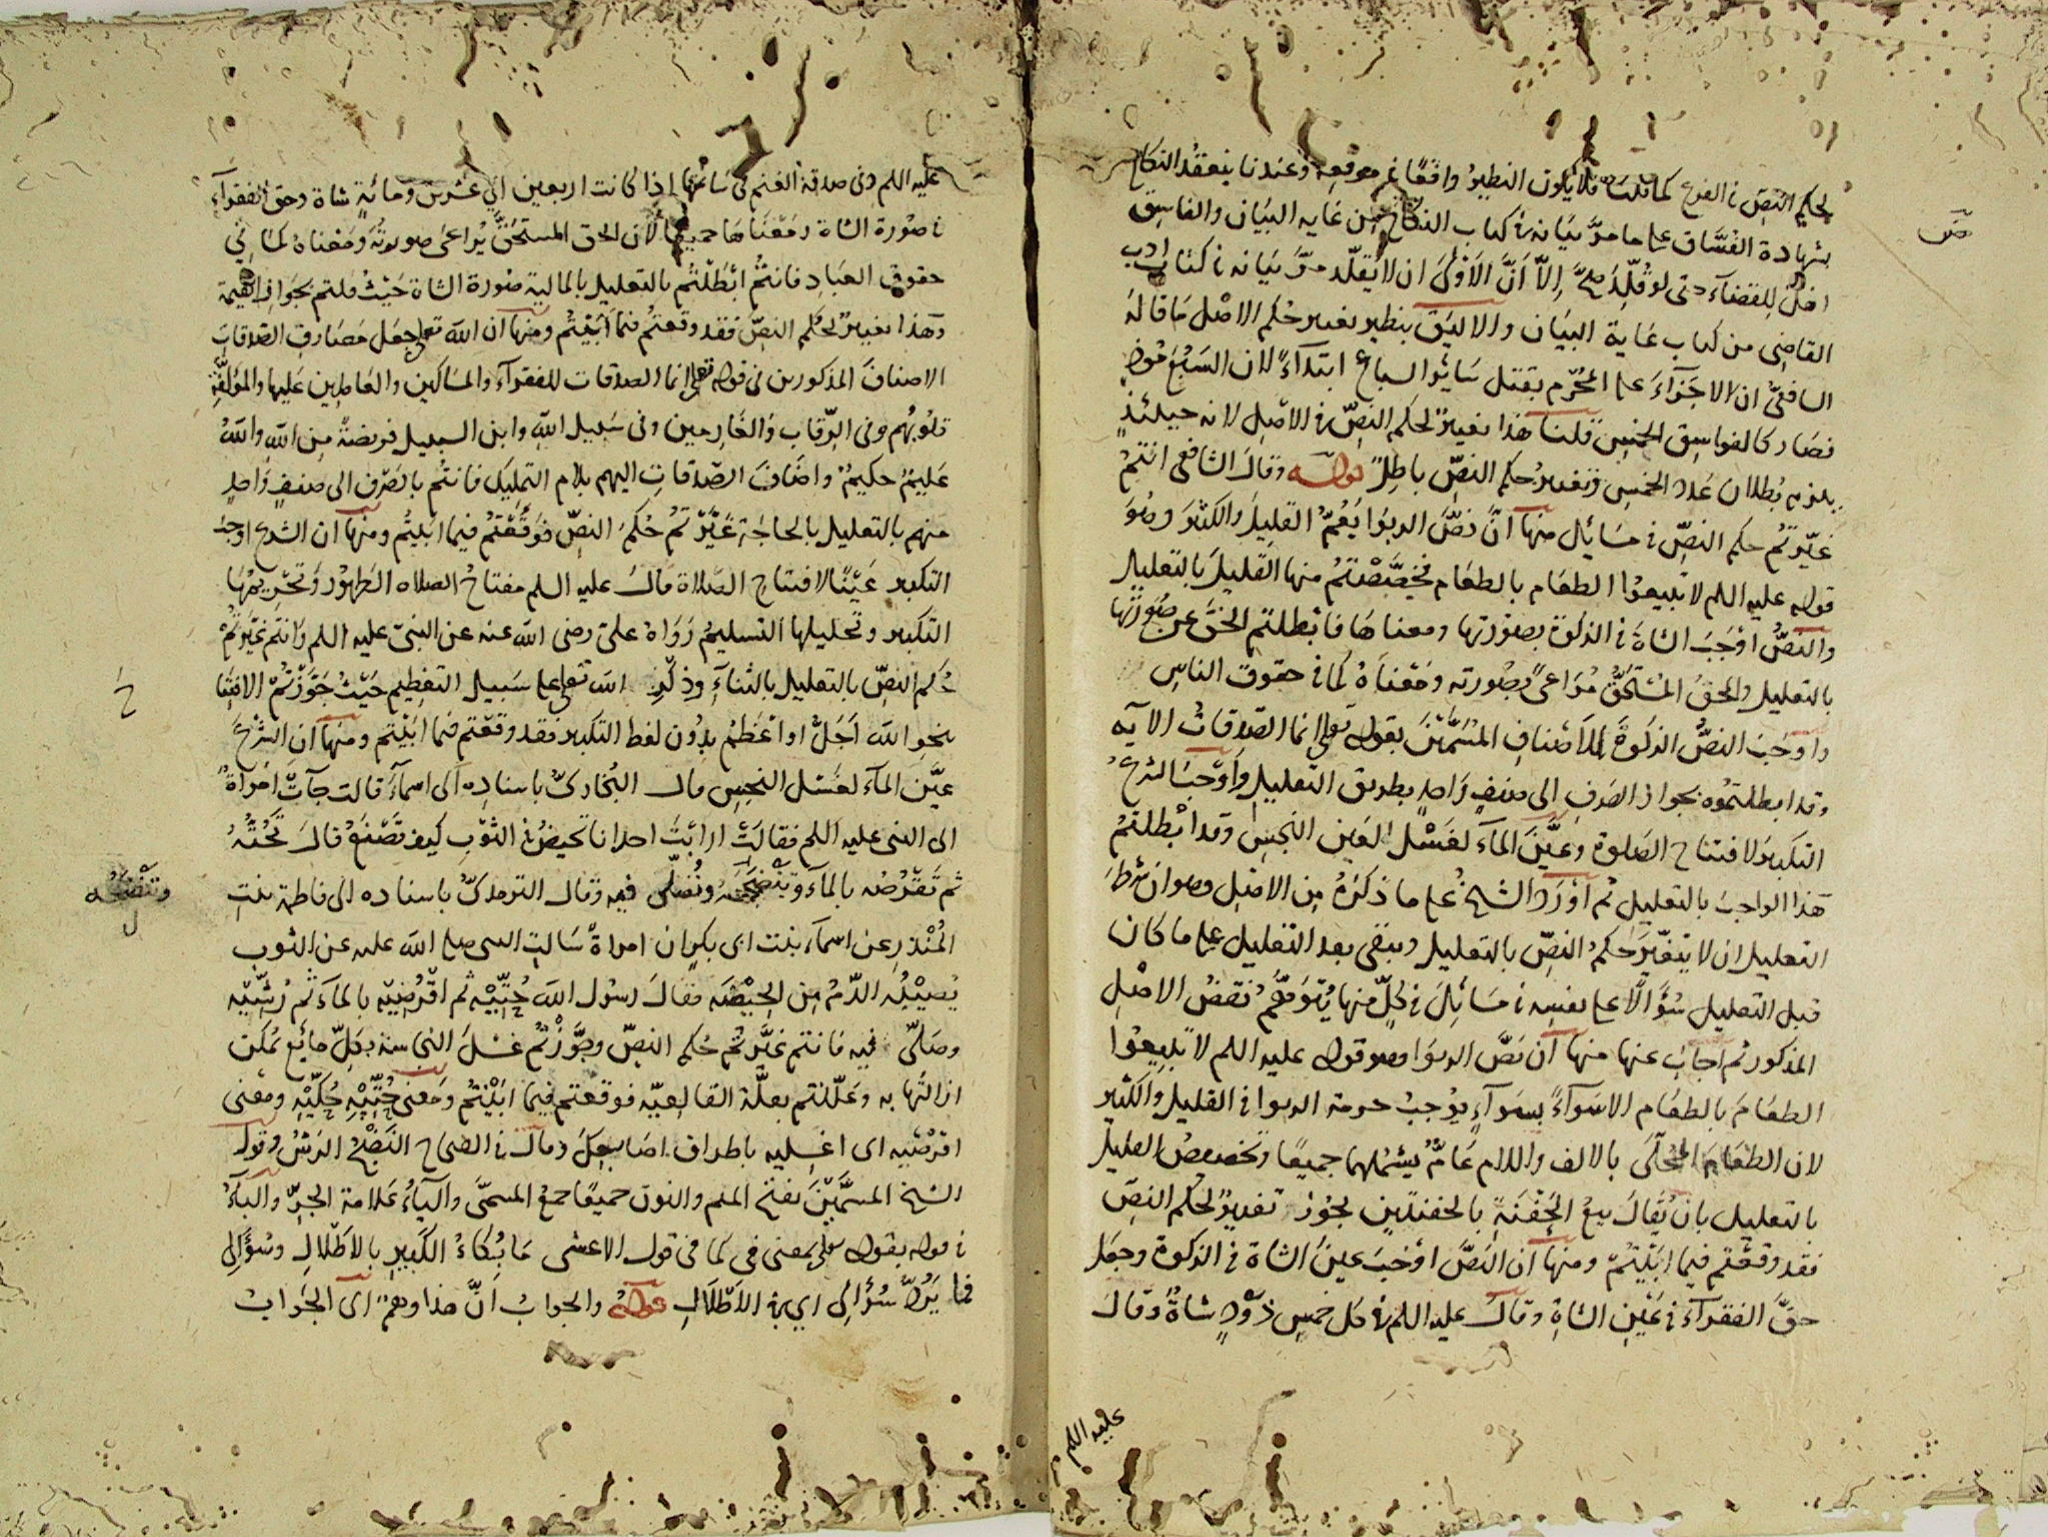 لحكم النص في الفرع كما قلت فلا يكون النظير واقعا في موقعه وعندنا ينعقد النكاح
بشهادة الفساق على ما مر بيانه في كتاب النكاح من غاية البيان والفاسق
اهل للقضاء حتى لو قلد صح الا أن الاولى ان لا يقلد مر بيانه في كتاب ادب
القاضي من كتاب غاية البيان والاليق بنظير تغيير حكم الاصل ما قاله
الشافعي ان لا جزاء على المحرم بقتل سائر السباع ابتداء لان السبع موذ
فصار كالفواسق الخمس قلنا هذا تغيير لحكم النص في الاصل لانه حينئذ
يلزم بطلان عدد الخمس وتغيير حكم النص باطل قوله وقال الشافعي انتم
غيرتم حكم النص في مسائل منها أن نص الربوا يعم القليل والكثير وهو
قوله عليه اللم لا تبيعوا الطعام بالطعام فخصصتم منها القليل بالتعليل
والنص اوجب الشاة في الزكوة بصورتها ومعناها فابطلتم الحق عن صورتها
بالتعليل والحق المستحق مراعى بصورته ومعناه كما في حقوق الناس
واوجب النص الزكوة للأصناف المسمين بقوله تعلى انما الصدقات الآيه
وقد ابطلتموه بجواز الصرف الى صنف واحد بطريق التعليل واوجب الشرع
التكبير لافتتاح الصلوة وعين الماء لغسل العين النجس وقد ابطلتم
هذا الواجب بالتعليل ثم اورد الشيخ على ما ذكره من الاصل وهو ان شرط
التعليل ان لا يتغير حكم النص بالتعليل ويبقى بعد التعليل على ما كان
قبل التعليل سؤالا على نفسه في مسائل في كل منها يتوهم نقض الاصل
المذكور ثم اجاب عنها منها أن نص الربوا وهو قوله عليه اللم لا تبيعوا
الطعام بالطعام الا سواء بسواء يوجب حرمة الربوا في القليل والكثير
لان الطعام المحلى بالالف واللام عام يشملهما جميعا وتخصيص القليل
بالتعليل بان يقال بيع الحفنة بالحفنتين يجوز تغيير لحكم النص
فقد وقعتم فيما ابيتم ومنها أن النص اوجب عين الشاة في الزكوة وجعل
حق الفقراء في عين الشاة وقال عليه اللم في كل خمس ذود شاة وقال
عليه اللم
عليه اللم وفي صدقة الغنم في سائمتها اذا كانت اربعين الى عشرين ومائة شاة وحق الفقراء
في صورة الشاة ومعناها جميعا لأن الحق المستحق يراعى صورته ومعناه كما في
حقوق العباد فانتم ابطلتم بالتعليل بالمالية صورة الشاة حيث قلتم بجواز القيمة
وهذا تغيير لحكم النص فقد وقعتم فيما ابيتم ومنها أن الله تعلى جعل مصارف الصدقات
الاصناف المذكورين في قوله تعلى انما الصدقات للفقراء والمساكين والعاملين عليها والمؤلفة
قلوبهم وفي الرقاب والغارمين وفي سبيل الله وابن السبيل فريضة من الله والله
عليم حكيم واضاف الصدقات اليهم بلام التمليك فانتم بالصرف الى صنف واحد
منهم بالتعليل بالحاجة غيرتم حكم النص فوقعتم فيما ابيتم ومنها ان الشرع اوجب
التكبير عينا لافتتاح الصلاة قال عليه اللم مفتاح الصلاه الطهور وتحريمها
التكبير وتحليلها التسليم رواه علي رضى الله عنه عن النبي عليه اللم وانتم غيرتم
حكم النص بالتعليل بالثناء وذكر الله تعلى على سبيل التعظيم حيث جوزتم الافتتاح
بنحو الله اجل او اعظم بدون لفظ التكبير فقد وقعتم فيما ابيتم ومنها ان الشرع
عين الماء لغسل النجس قال البخاري باسناده الى اسماء قالت جاءت امراة
الى النبي عليه اللم فقالت ارايت احدانا تحيض في الثوب كيف تصنع قال تحته
ثم تقرصه بالماء وتنضحه وتصلى فيه وقال الترمذي باسناده الى فاطمة بنت
وتنضحه
المنذر عن اسماء بنت ابي بكر ان امراة سالت النبي صلى الله عليه عن الثوب
يصيبه الدم من الحيضه فقال رسول الله حتيه ثم اقرصيه بالماء ثم رشيه
وصلى فيه فانتم غيرتم حكم النص وجوزتم غسل النجاسة بكل مائع يمكن
ازالتها به وعللتم بعلة القالعيه فوقعتم فيما ابيتم ومعنى حتيه حكيه ومعنى
اقرصيه اى اغسليه باطراف اصابعك وقال في الصحاح النضح الرش وقول
الشيخ المسمين بفتح الميم والنون جميعا جمع المسمى والياء علامة الجر والباء
في قوله بقوله تعلى بمعنى في كما في قول الاعشى ما بكاء الكبير بالاطلال وسؤالى
فما يرد سؤالى اي في الاطلال قوله والجواب ان هذا وهم اى الجواب